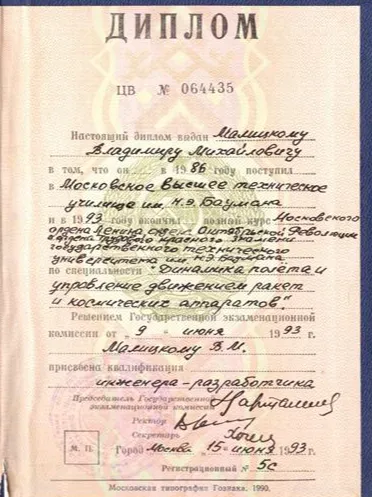 ДИПЛОМ
ЦВ № 064435
Настоящий диплом выдан Малицкому
Владимиру Михайловичу
в том, что он в 1986 году поступил
в Московское Высшее техническое
училище им. Н.Э. Баумана
и в 1993 году окончил полный курс Московского
ордена Ленина, ордена Октябрьской Революции
и ордена Трудового Красного Знамени
государственного технического
университета им. Н.Э. Баумана
по специальности "Динамика полёта и
управление движением ракет
и космических аппаратов".
Решением Государственной экзаменационной
комиссии от „ 9 " июня 1993 г.
Малицкому В.М.
присвоена квалификация
инженера-разработчика
Председатель Государственной
экзаменационной комиссии
Ректор
Секретарь
М. П.
Город Москва 15 июня 1993 г.
Регистрационный № 5с
Московская типография Гознака. 1990.